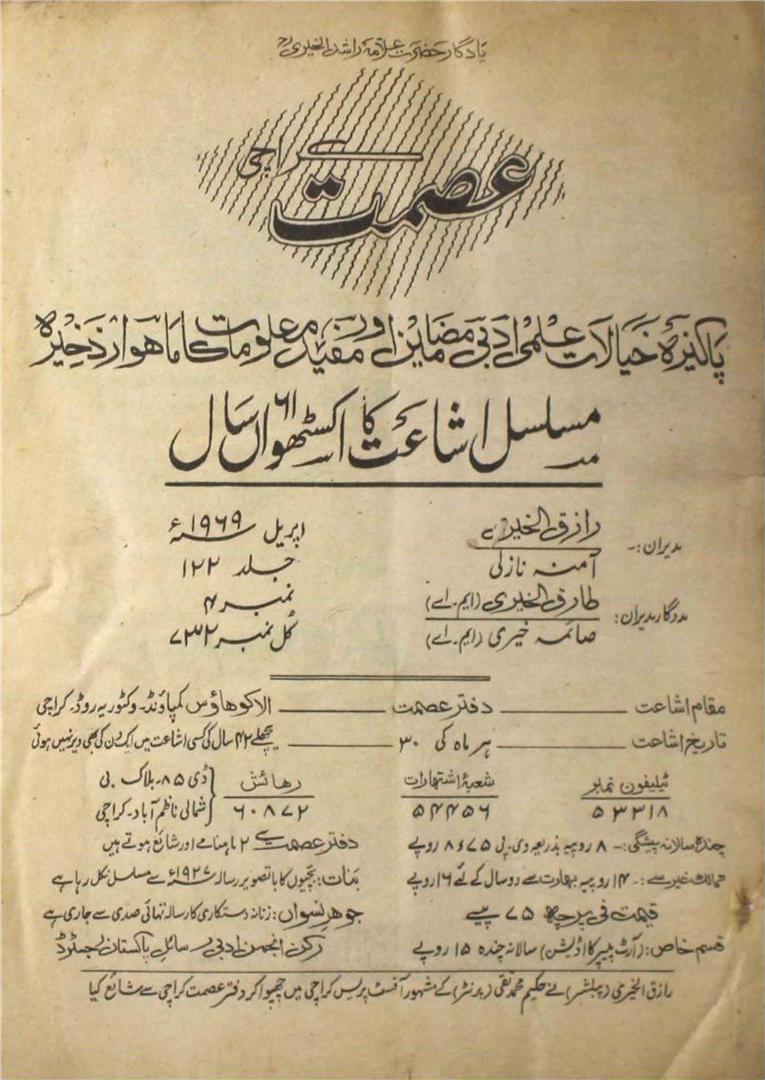 یادگار حضرت علامہ راشد الخیری رح
عصمت کراچی
پاکیزہ خیالات علمی ادبی مضامین اور مفید معلومات کا ماہوار ذخیرہ
مسلسل اشاعت کا اکسٹھواں ۶۱ سال
مدیران:- رازق الخیری اپریل ۱۹۶۹ء
آمنہ نازلی جلد ۱۲۲
مددگار مدیران: طارق الخیری (ایم۔اے) نمبر ۴
صائمہ خیری (ایم۔اے) کل نمبر ۷۳۲
مقام اشاعت دفتر عصمت الاکو ہاؤس کمپاؤنڈ۔ وکٹوریہ روڈ۔ کراچی
تاریخ اشاعت ہر ماہ کی ۳۰ پچھلے ۴۲ سال کی کسی اشاعت میں ایک دن کی بھی دیر نہیں ہوئی
ٹیلیفون نمبر شعبۂ اشتہارات رہائش ڈی ۸۵۔ بلاک بی
۵۳۳۱۸ ۵۴۴۵۶ ۶۰۸۷۲ شمالی ناظم آباد۔ کراچی
چندہ سالانہ پیشگی:- ۸ روپیہ بذریعہ وی۔پی ۸٫۷۵ روپے دفتر عصمت سے ۲ ماہنامے اور شائع ہوتے ہیں
ممالک غیر سے:- ۱۴ روپیہ بھارت سے دو سال کے لئے ۱۶ روپے بنات: بچیوں کا باتصویر رسالہ ۱۹۲۷ء سے مسلسل نکل رہا ہے
قیمت فی پرچہ ۷۵ پیسے جوہر نسواں: زنانہ دستکاری کا رسالہ تہائی صدی سے جاری ہے
قسم خاص: (آرٹ پیپر کا اڈیشن) سالانہ چندہ ۱۵ روپے رکن انجمن ادبی رسائل پاکستان رجسٹرڈ
رازق الخیری (پبلشر) نے حکیم محمد تقی (پرنٹر) کے مشہور آفسٹ پریس کراچی میں چھپوا کر دفتر عصمت کراچی سے شائع کیا